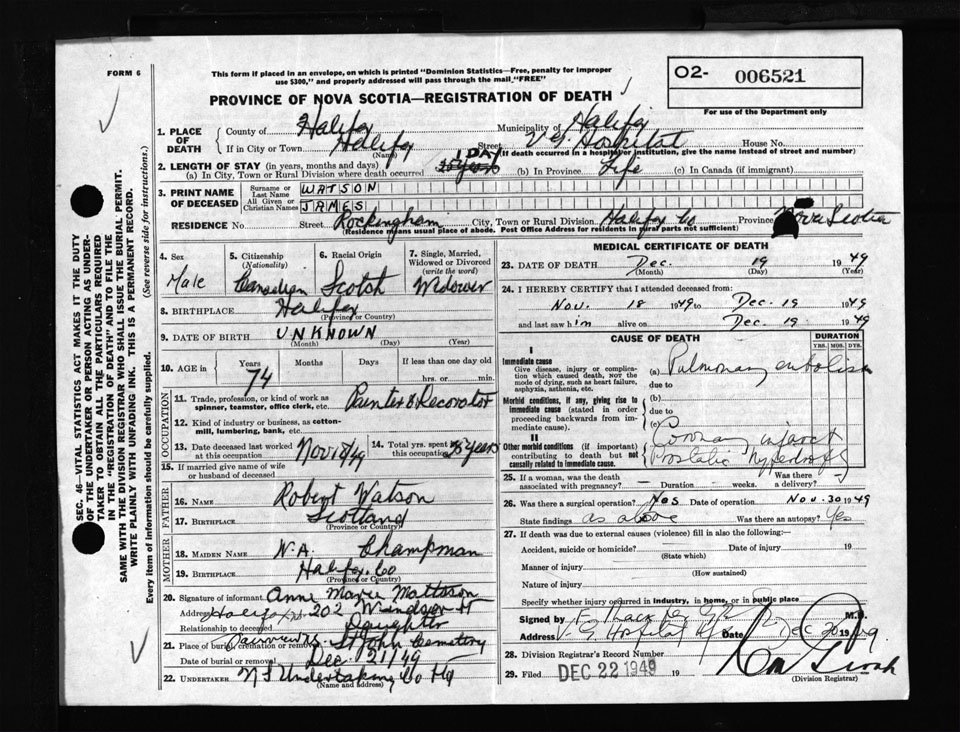 FORM 6
This form if placed in an envelope, on which is printed "Dominion Statistics—Free, penalty for improper
use $300," and properly addressed will pass through the mail "FREE"
O2- 006521
For use of the Department only
PROVINCE OF NOVA SCOTIA—REGISTRATION OF DEATH
1. PLACE OF DEATH { County of Halifax Municipality of Halifax
If in City or Town Halifax (Name) Street V.G. Hospital House No.
(If death occurred in a hospital or institution, give the name instead of street and number)
2. LENGTH OF STAY (in years, months and days)
(a) In City, Town or Rural Division where death occurred 1 DAY (b) In Province Life (c) In Canada (if immigrant)
3. PRINT NAME OF DECEASED { Surname or Last Name WATSON
All Given or Christian Names JAMES
RESIDENCE No. Street Rockingham City, Town or Rural Division Halifax Co Province Nova Scotia
(Residence means usual place of abode. Post Office Address for residents in rural parts not sufficient)
4. Sex Male
5. Citizenship (Nationality) Canadian
6. Racial Origin Scotch
7. Single, Married, Widowed or Divorced (write the word) Widower
8. BIRTHPLACE Halifax (Province or Country)
9. DATE OF BIRTH UNKNOWN (Month) (Day) (Year)
10. AGE in { Years 74 Months Days If less than one day old hrs. or min.
OCCUPATION
11. Trade, profession, or kind of work as spinner, teamster, office clerk, etc. Painter & Decorator
12. Kind of industry or business, as cotton-mill, lumbering, bank, etc.
13. Date deceased last worked at this occupation Nov 18/49
14. Total yrs. spent in this occupation years
15. If married give name of wife or husband of deceased
FATHER
16. NAME Robert Watson
17. BIRTHPLACE Scotland (Province or Country)
MOTHER
18. MAIDEN NAME N.A. Champman
19. BIRTHPLACE Halifax Co (Province or Country)
20. Signature of informant Anna Marie Mattson
Address Halifax 202 Windsor St
Relationship to deceased Daughter
21. Place of burial, cremation or removal Fairview St John Cemetery
Date of burial or removal Dec 21/49
22. UNDERTAKER N S Undertaking Co Hfx
(Name and address)
MEDICAL CERTIFICATE OF DEATH
23. DATE OF DEATH Dec. 19 1949
(Month) (Day) (Year)
24. I HEREBY CERTIFY that I attended deceased from:
Nov. 18 1949 to Dec. 19 1949
and last saw him alive on Dec. 19 1949
CAUSE OF DEATH
DURATION
YRS. MOS. DYS.
I
Immediate cause
Give disease, injury or complication which caused death, NOT the mode of dying, such as heart failure, asphyxia, asthenia, etc.
(a) Pulmonary embolism
due to
Morbid conditions, if any, giving rise to immediate cause (stated in order proceeding backwards from immediate cause).
(b)
due to
(c)
II
Other morbid conditions (if important) contributing to death but not causally related to immediate cause.
Coronary infarct
Prostatic hypertrophy
25. If a woman, was the death associated with pregnancy? — Duration weeks. Was there a delivery? —
26. Was there a surgical operation? Yes Date of operation Nov. 30 1949
State findings as above Was there an autopsy? Yes
27. If death was due to external causes (violence) fill in also the following:
Accident, suicide or homicide? (State which) Date of injury 19
Manner of injury (How sustained)
Nature of injury
Specify whether injury occurred in industry, in home, or in public place
Signed by M.D.
Address V. G. Hospital Hfx Date Dec 20 1949
28. Division Registrar's Record Number
29. Filed DEC 22 1949 19
(Division Registrar)
SEC. 46—VITAL STATISTICS ACT MAKES IT THE DUTY
OF THE UNDERTAKER OR PERSON ACTING AS UNDER-
TAKER TO OBTAIN ALL THE PARTICULARS REQUIRED
IN THE "REGISTRATION OF DEATH" AND TO FILE THE
SAME WITH THE DIVISION REGISTRAR WHO SHALL ISSUE THE BURIAL PERMIT.
WRITE PLAINLY WITH UNFADING INK. THIS IS A PERMANENT RECORD.
Every item of information should be carefully supplied. (See reverse side for instructions.)